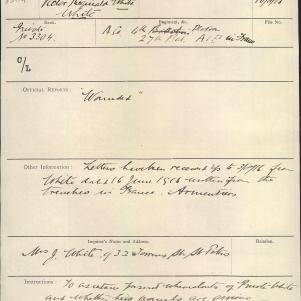 Victor Reginald White
White
Rank.
Regiment, &c.
File No.
Private
No 3304.
27th Btn. A.I.F. in France
O/L
OFFICIAL REPORTS:
"Wounded"
Other Information:
Letters have been received up to 3/7/16 from
White dated 16 June 1916 written from the
trenches in France. Armentieres
Inquirer's Name and Address.
Relation.
Mrs J. White, 932 Torrens St. St Peters
Instructions:
To ascertain present whereabouts of Private White
and whether his wounds are serious